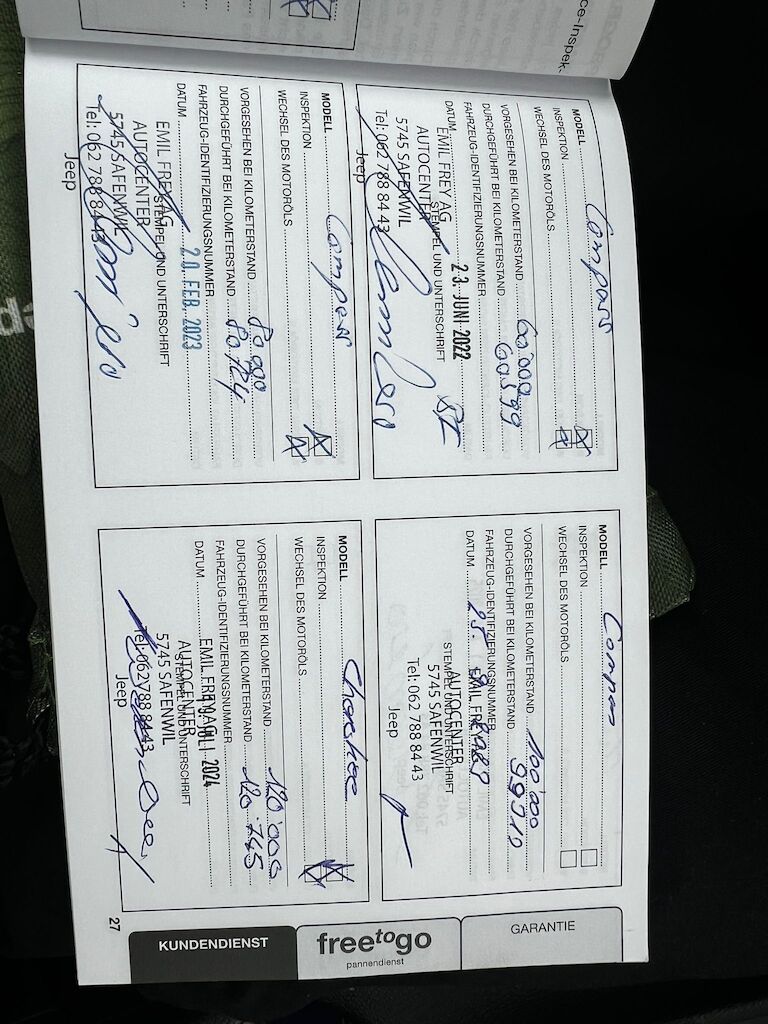 ce-Inspek-
MODELL Compass
INSPEKTION
WECHSEL DES MOTORÖLS
VORGESEHEN BEI KILOMETERSTAND 60'000
DURCHGEFÜHRT BEI KILOMETERSTAND 60599
FAHRZEUG-IDENTIFIZIERUNGSNUMMER
DATUM 23. JUNI 2022
STEMPEL UND UNTERSCHRIFT
EMIL FREY AG
AUTOCENTER
5745 SAFENWIL
Tel: 062 788 84 43
Jeep
MODELL Compass
INSPEKTION
WECHSEL DES MOTORÖLS
VORGESEHEN BEI KILOMETERSTAND 80 000
DURCHGEFÜHRT BEI KILOMETERSTAND 80.724
FAHRZEUG-IDENTIFIZIERUNGSNUMMER
DATUM 20. FEB. 2023
STEMPEL UND UNTERSCHRIFT
EMIL FREY AG
AUTOCENTER
5745 SAFENWIL
Tel: 062 788 84 43
Jeep
MODELL Compass
INSPEKTION
WECHSEL DES MOTORÖLS
VORGESEHEN BEI KILOMETERSTAND 100'000
DURCHGEFÜHRT BEI KILOMETERSTAND
FAHRZEUG-IDENTIFIZIERUNGSNUMMER
DATUM
STEMPEL UND UNTERSCHRIFT
EMIL FREY
AUTOCENTER
5745 SAFENWIL
Tel: 062 788 84 43
Jeep
MODELL Cherokee
INSPEKTION
WECHSEL DES MOTORÖLS
VORGESEHEN BEI KILOMETERSTAND 120'000
DURCHGEFÜHRT BEI KILOMETERSTAND 120.745
FAHRZEUG-IDENTIFIZIERUNGSNUMMER
DATUM JULI 2024
STEMPEL UND UNTERSCHRIFT
EMIL FREY AG
AUTOCENTER
5745 SAFENWIL
Tel: 062 788 84 43
Jeep
27
KUNDENDIENST
freetogo
pannendienst
GARANTIE